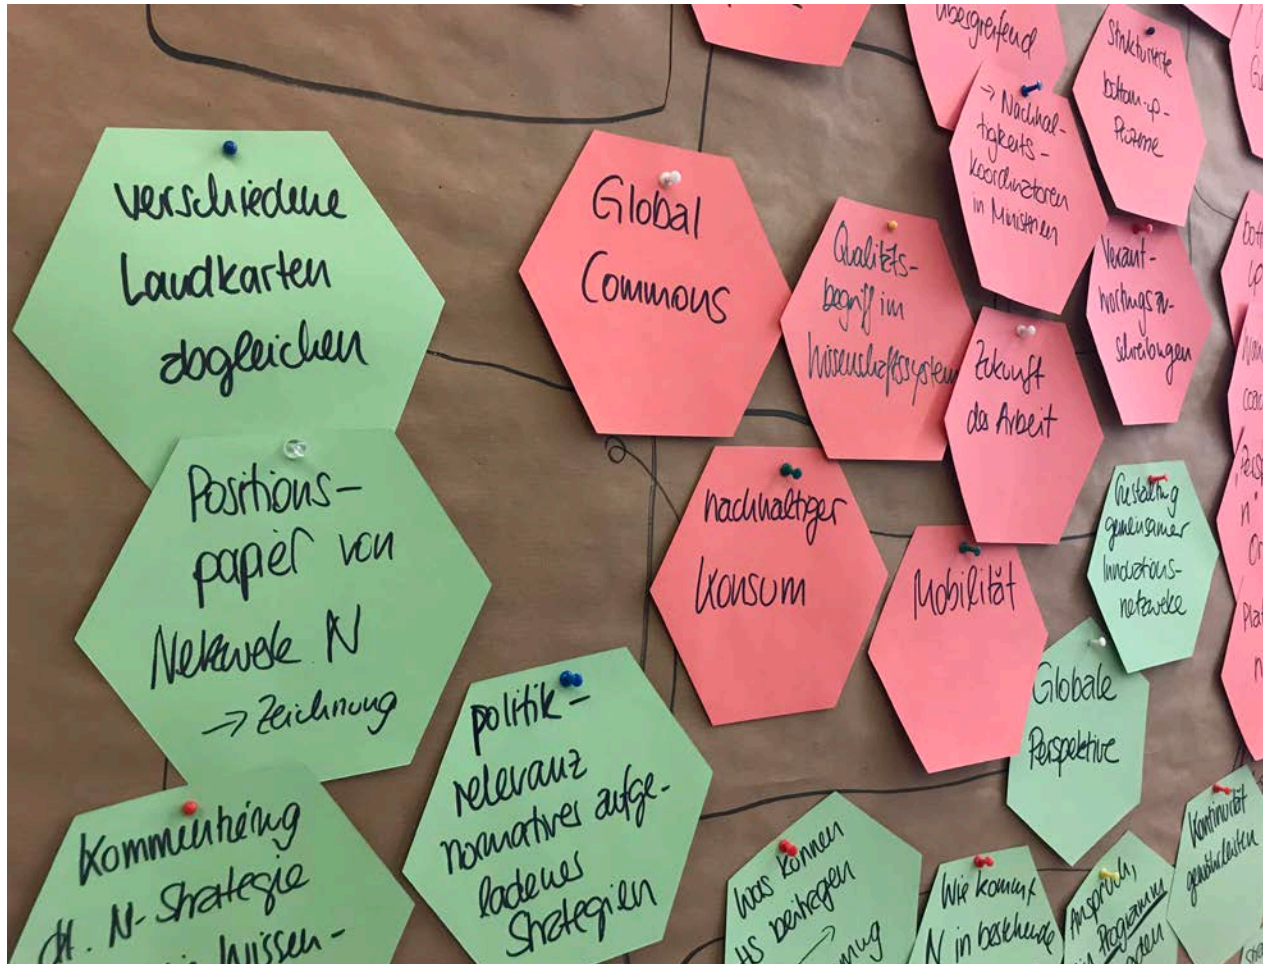 verschiedene
Landkarten
abgleichen
Positions-
papier von
Netzwerk N
→ Zeichnung
Kommentierung
dt. N-Strategie
Wissen-
politik-
relevanz
normatives aufge-
ladenes
Strategien
Global
Commons
Qualitäts-
begriff im
Wissenschaftssystem
übergreifend
→ Nachhal-
tigkeits-
koordinatoren
in Ministerien
Strukturierte
bottom-up-
Prozesse
Verant-
wortungszu-
schreibungen
Zukunft
der Arbeit
nachhaltiger
Konsum
Mobilität
Gestaltung
gemeinsamer
Innovations-
netzwerke
Globale
Perspektive
Was können
HS beitragen
Wie kommt
N in bestehende
Anspruch,
Programm
Kontinuität
gewährleisten